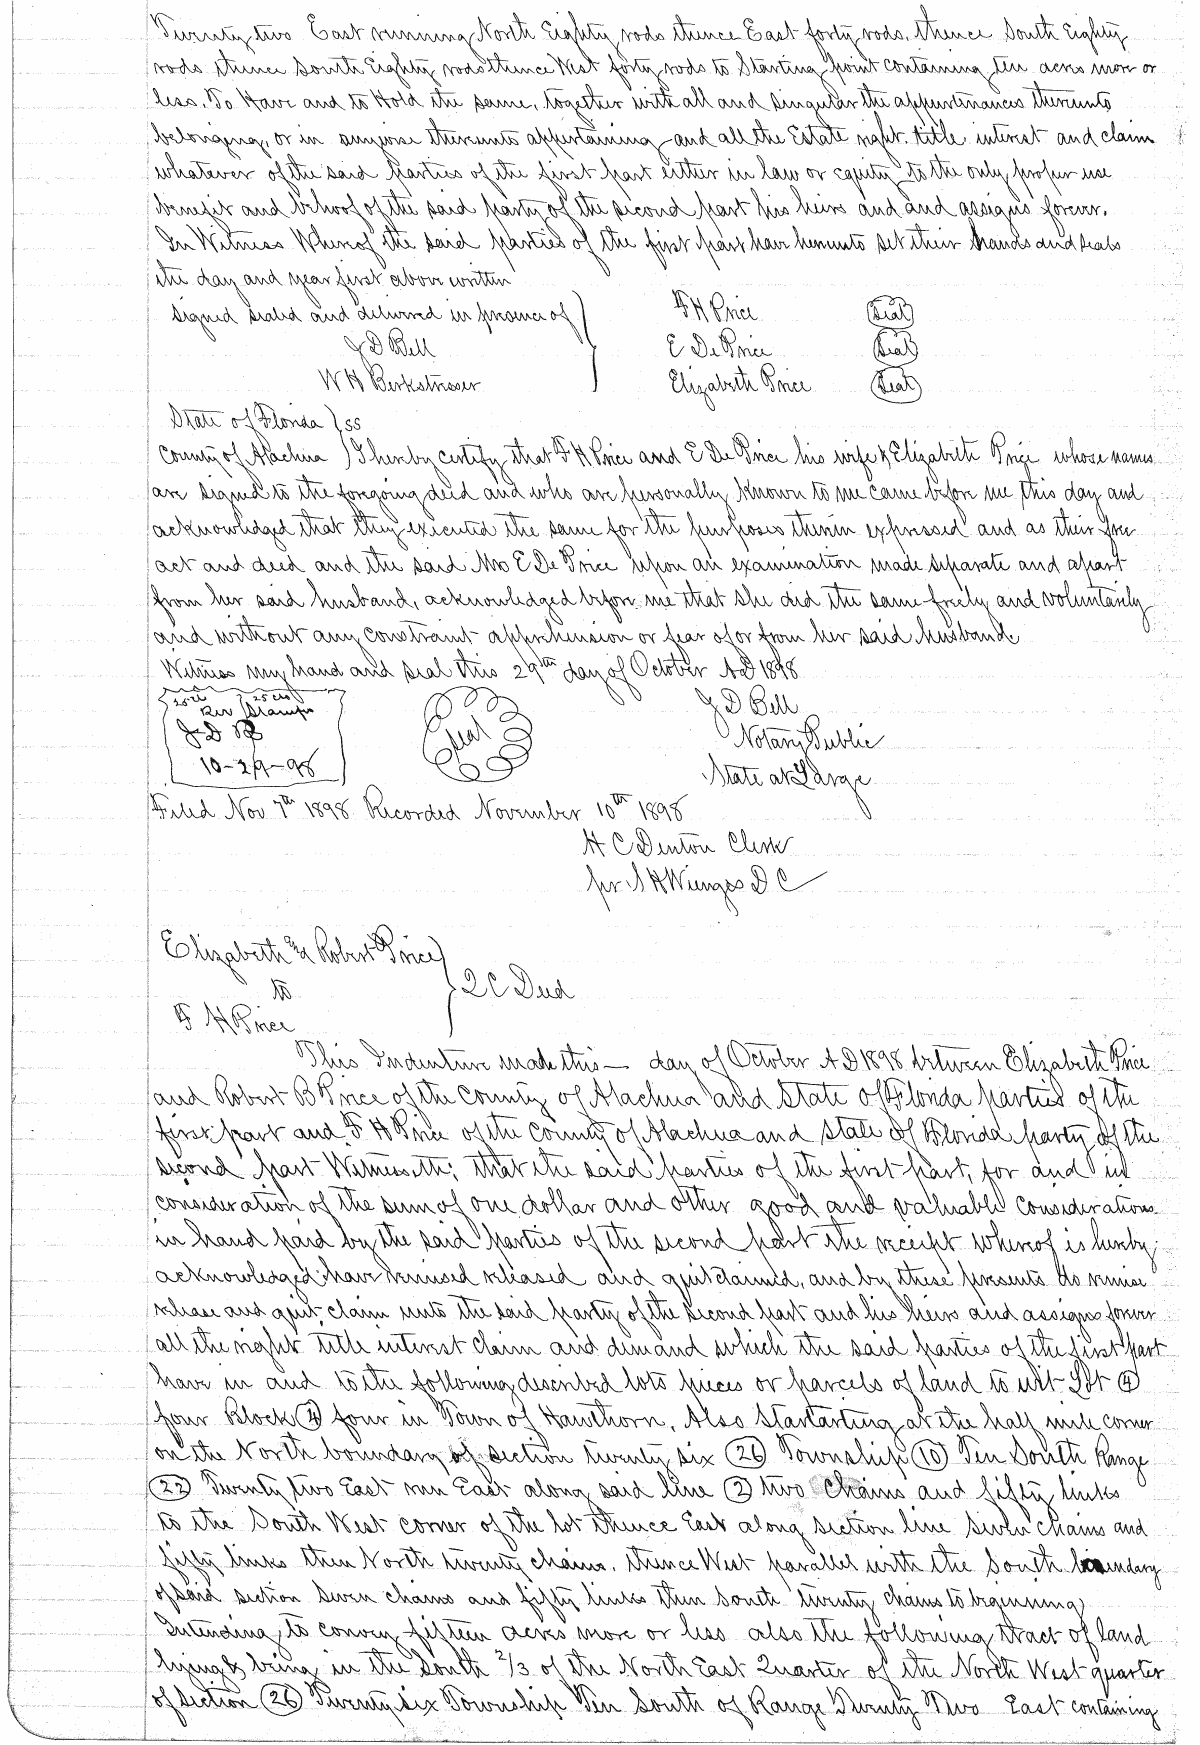 Twenty two East running North Eighty rods thence East forty rods, thence South Eighty
rods thence South Eighty rods thence West forty rods to Starting point containing ten acres more or
less. To Have and to Hold the same, together with all and singular the appurtenances thereunto
belonging, or in anywise thereunto appertaining and all the Estate right title interest and claim
whatever of the said parties of the first part either in law or equity to the only proper use
benefit and behoof of the said party of the second part his heirs and and assigns forever.
In Witness Whereof the said parties of the first part have hereunto set their hands and seals
the day and year first above written
Signed sealed and delivered in presence of F H Price Seal
J D Bell E De Price Seal
W H Berkstresser Elizabeth Price Seal
State of Florida ) ss
County of Alachua ) I hereby certify that F H Price and E De Price his wife & Elizabeth Price whose names
are signed to the foregoing deed and who are personally known to me came before me this day and
acknowledged that they executed the same for the purposes therein expressed and as their free
act and deed and the said Mrs E De Price upon an examination made separate and apart
from her said husband, acknowledged before me that she did the same freely and voluntarily
and without any constraint apprehension or fear of or from her said husband.
Witness my hand and seal this 29th day of October AD 1898
25 cts 25 cts J D Bell
Rev Stamps Seal Notary Public
J D B State at Large
10-29-98
Filed Nov 7th 1898 Recorded November 10th 1898
H C Denton Clerk
pr S H Wienges D C
Elizabeth & Robert Price
to Q C Deed
F H Price
This Indenture made this — day of October AD 1898 between Elizabeth Price
and Robert B Price of the County of Alachua and State of Florida parties of the
first part and F H Price of the County of Alachua and State of Florida party of the
second part Witnesseth; that the said parties of the first part, for and in
consideration of the sum of one dollar and other good and valuable considerations
in hand paid by the said parties of the second part the receipt whereof is hereby
acknowledged have remised released and quitclaimed, and by these presents do remise
release and quit claim unto the said party of the second part and his heirs and assigns forever
all the right title interest claim and demand which the said parties of the first part
have in and to the following described lots pieces or parcels of land to wit Lot (4)
four Block (4) four in Town of Hawthorn. Also Startarting at the half mile corner
on the North boundary of section twenty six (26) Township (10) Ten South Range
(22) Twenty two East run East along said line (2) two chains and fifty links
to the South West corner of the lot thence East along section line Seven chains and
fifty links then North twenty chains. thence West parallel with the South boundary
of said section Seven chains and fifty links then South twenty chains to beginning
Intending to convey fifteen acres more or less also the following tract of land
lying & being in the South 2/3 of the North East Quarter of the North West quarter
of section (26) Twenty six Township Ten South of Range Twenty Two East containing